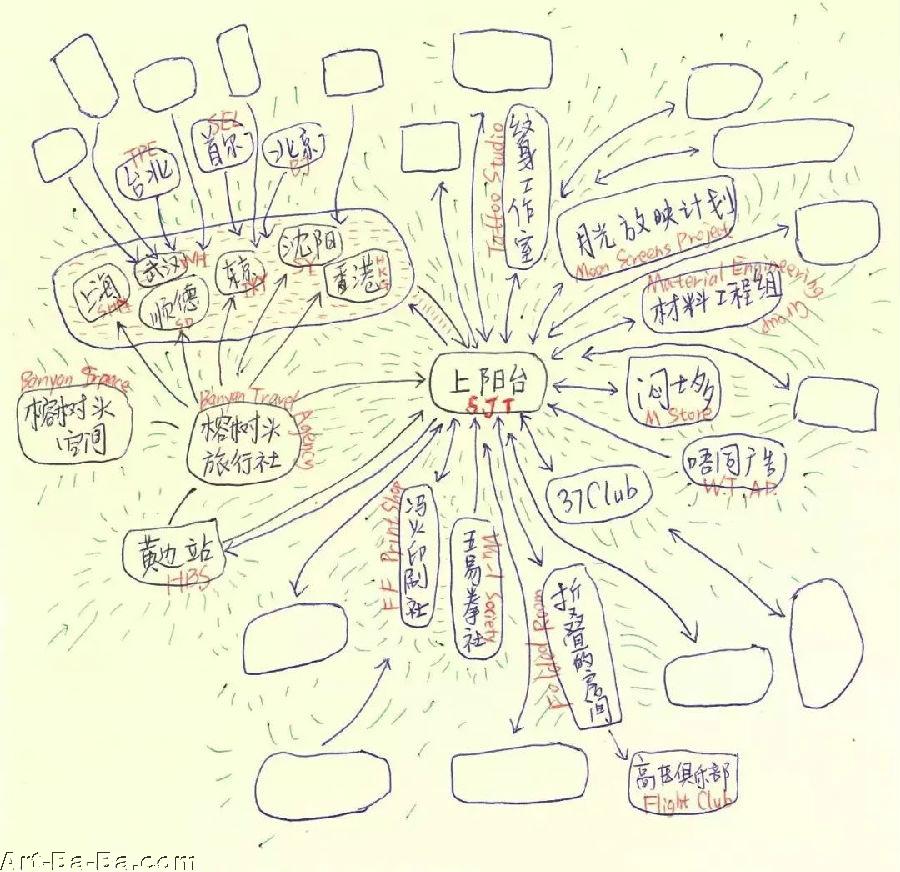 TPE
台北
SEL
首尔
北京
BJ
上海
SHA
武汉
WH
顺德
SD
东京
TKY
沈阳
SY
香港
HKG
纹身工作室
Tattoo Studio
月光放映计划
Moon Screens Project
Material Engineering
Group
材料工程组
上阳台
SJT
闷士多
M Store
唔同广告
W.T. AD.
37Club
Banyan Space
榕树头
空间
Banyan Travel
Agency
榕树头
旅行社
黄边站
HBS
冯火印刷社
FF Printshop
五易拳社
Wu-1 Society
折叠的房间
Folded Room
俱乐部
Flight Club
Art-Ba-Ba.com